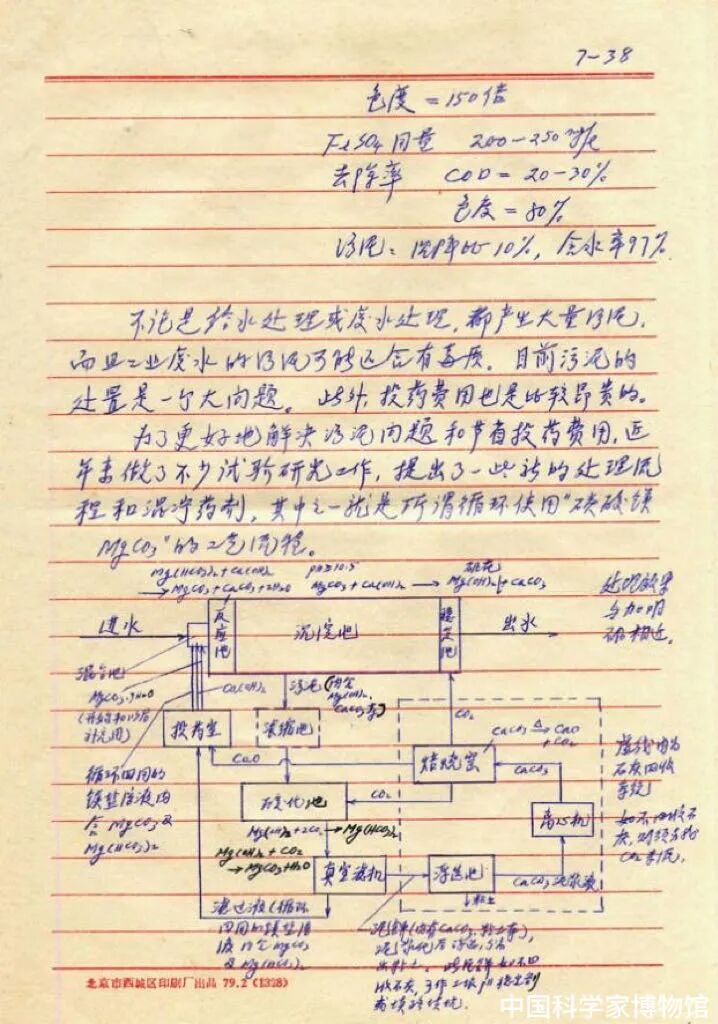 7-38
色度=150倍
FeSO4用量 200-250mg/l
去除率 COD=20-30%
色度=80%
污泥:沉降比10%,含水率97%
不论是给水处理或废水处理,都产生大量污泥,
而且工业废水的污泥可能还含有毒质。目前污泥的
处置是一个大问题。此外,投药费用也是比较昂贵的。
为了更好地解决污泥问题和节省投药费用,近
年来做了不少试验研究工作,提出了一些新的处理流
程和混凝药剂,其中之一就是所谓循环使用"碳酸镁
MgCO3"的工艺流程。
Mg(HCO3)2+Ca(OH)2
→MgCO3+CaCO3+2H2O
pH≥10.5
MgCO3+Ca(OH)2 → Mg(OH)2+CaCO3
矾花
处理效果
与加明
矾相近。
进水
反应池
沉淀池
稳定池
出水
混合池
MgCO3·3H2O
(开始和以后
补充用)
Ca(OH)2
污泥(内含
Mg(OH)2,
CaCO3等)
投药室
浓缩池
CO2
CaO
焙烧窑
CaCO3 △→ CaO
+CO2
虚线内为
石灰回收
系统
循环回用的
镁盐溶液内
含MgCO3及
Mg(HCO3)2
碳化池
CO2
CaCO3
离心机
如不回收石
灰,则须另找
CO2来源。
Mg(OH)2+2CO2→Mg(HCO3)2
Mg(OH)2+CO2
→MgCO3+H2O
真空滤机
浮选池
CaCO3泥浆液
粘土
滤过液(循环
回用的镁盐溶
液内含MgCO3
及Mg(HCO3)2
泥饼(内有CaCO3,粘土等),
出粘土。此泥饼如不回
收石灰,
或填路填坑。
北京市西城区印刷厂出品 79.2 (1328)
中国科学家博物馆